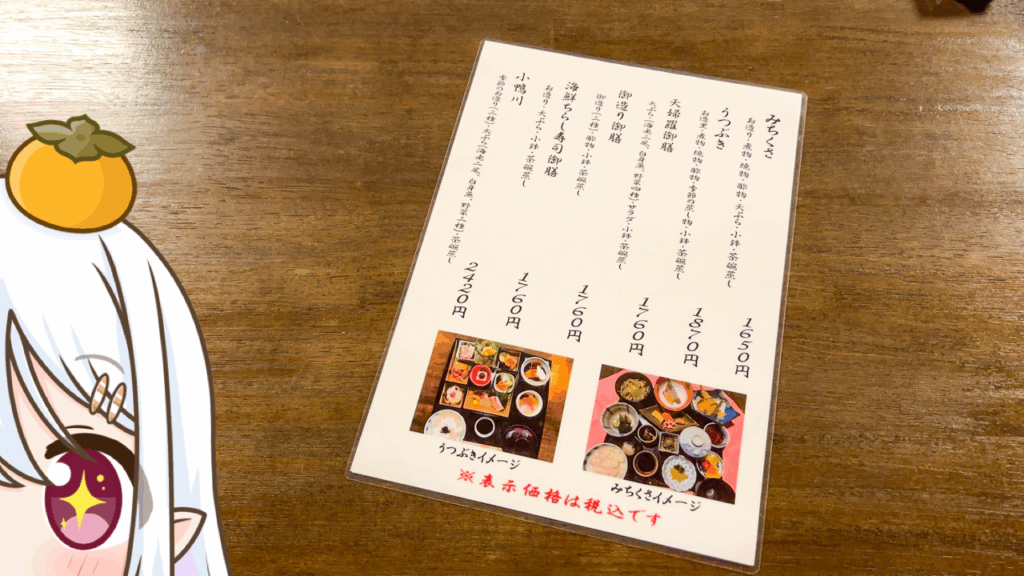 みちくさ
お造り・煮物・焼物・酢物・天ぷら・小鉢・茶碗蒸し
1650円
うつぶき
お造里・煮物・焼物・酢物・季節の蒸し物・小鉢・茶碗蒸し
1870円
天婦羅御膳
天ぷら(海老二尾、白身魚、野菜四種)・サラダ・小鉢・茶碗蒸し
1760円
御造り御膳
御造り(三種)・酢物・小鉢・茶碗蒸し
1760円
海鮮ちらし寿司御膳
お造り・天ぷら・小鉢・茶碗蒸し
1760円
小鴨川
季節のお造り(三種)・天ぷら(海老二尾、白身魚、野菜三種)・茶碗蒸し
2420円
うつぶきイメージ
みちくさイメージ
※表示価格は税込です